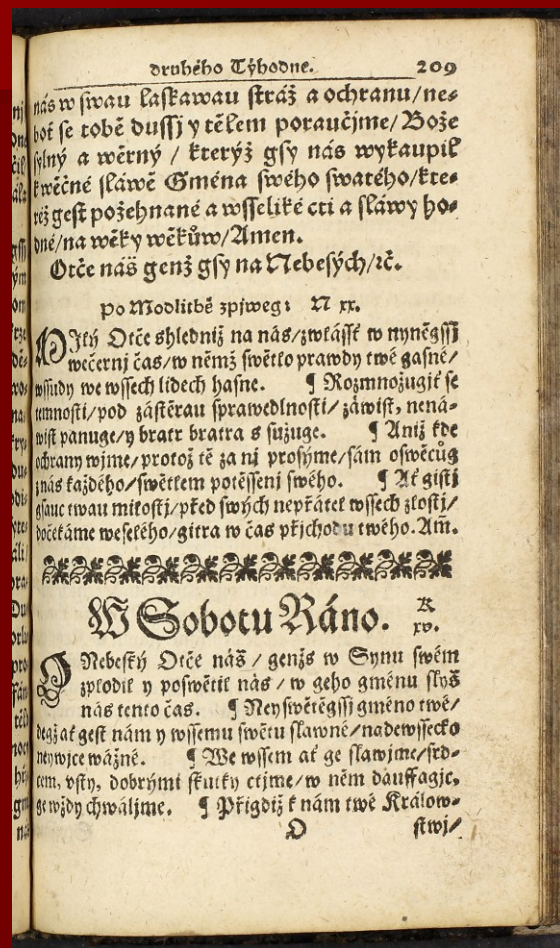 druhého Týhodne. 209
nás w swau laskawau stráž a ochranu/ne-
boť se tobě dussj y tělem poraučjme/Bože
sylný a wěrný / kterýž gsy nás wykaupil
k wěčné sláwě Gména swého swatého/kte-
réž gest požehnané a wsseliké cti a sláwy ho-
dné/na wěky wěkůw/Amen.
Otče náš genž gsy na Nebesých/ꝛč.
Po Modlitbě zpjweg: N xx.
Otče shledniž na nás/zwlásstť w nyněgssj
wečernj čas/w němž swětlo prawdy twé gasné/
wssudy we wssech lidech hasne. ¶ Rozmnožugjť se
temnosti/pod zástěrau sprawedlnosti/záwist, nená-
wist panuge/y bratr bratra s sužuge. ¶ Aniž kde
ochrany wjme/protož tě za nj prosýme/sám oswěcůg
z nás každého/swětlem potěssenj swého. ¶ Ať gistj
gsauc twau milostj/před swých nepřátel wssech zlostj/
dočekáme weselého/gitra w čas přjchodu twého. Am̃.
W Sobotu Ráno. K
xv.
O Nebeský Otče náš / genžs w Synu swém
zplodil y poswětil nás / w geho gménu slyš
nás tento čas. ¶ Neyswětěgssj gméno twé/
degž ať gest nám y wssemu swětu slawné/nadewssecko
neywjce wážné. ¶ We wssem ať ge slawjme/srd-
cem, vsty, dobrými skutky ctjme/w něm dauffagjc,
ge wždy chwáljme. ¶ Přigdiž k nám twé Králow-
O stwj/